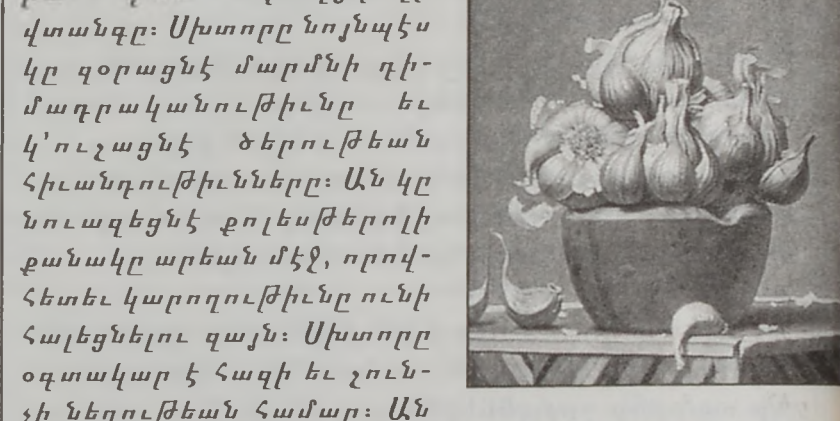 վտանգը։ Սխտորը նոյնպէս
կը զօրացնէ մարմնի դի-
մադրականութիւնը եւ
կ՚ուշացնէ ծերութեան
հիւանդութիւնները։ Ան կը
նուազեցնէ քոլեսթերոլի
քանակը արեան մէջ, որով-
հետեւ կարողութիւնը ունի
հալեցնելու զայն։ Սխտորը
օգտակար է հազի եւ շուն-
չի նեղութեան համար։ Ան